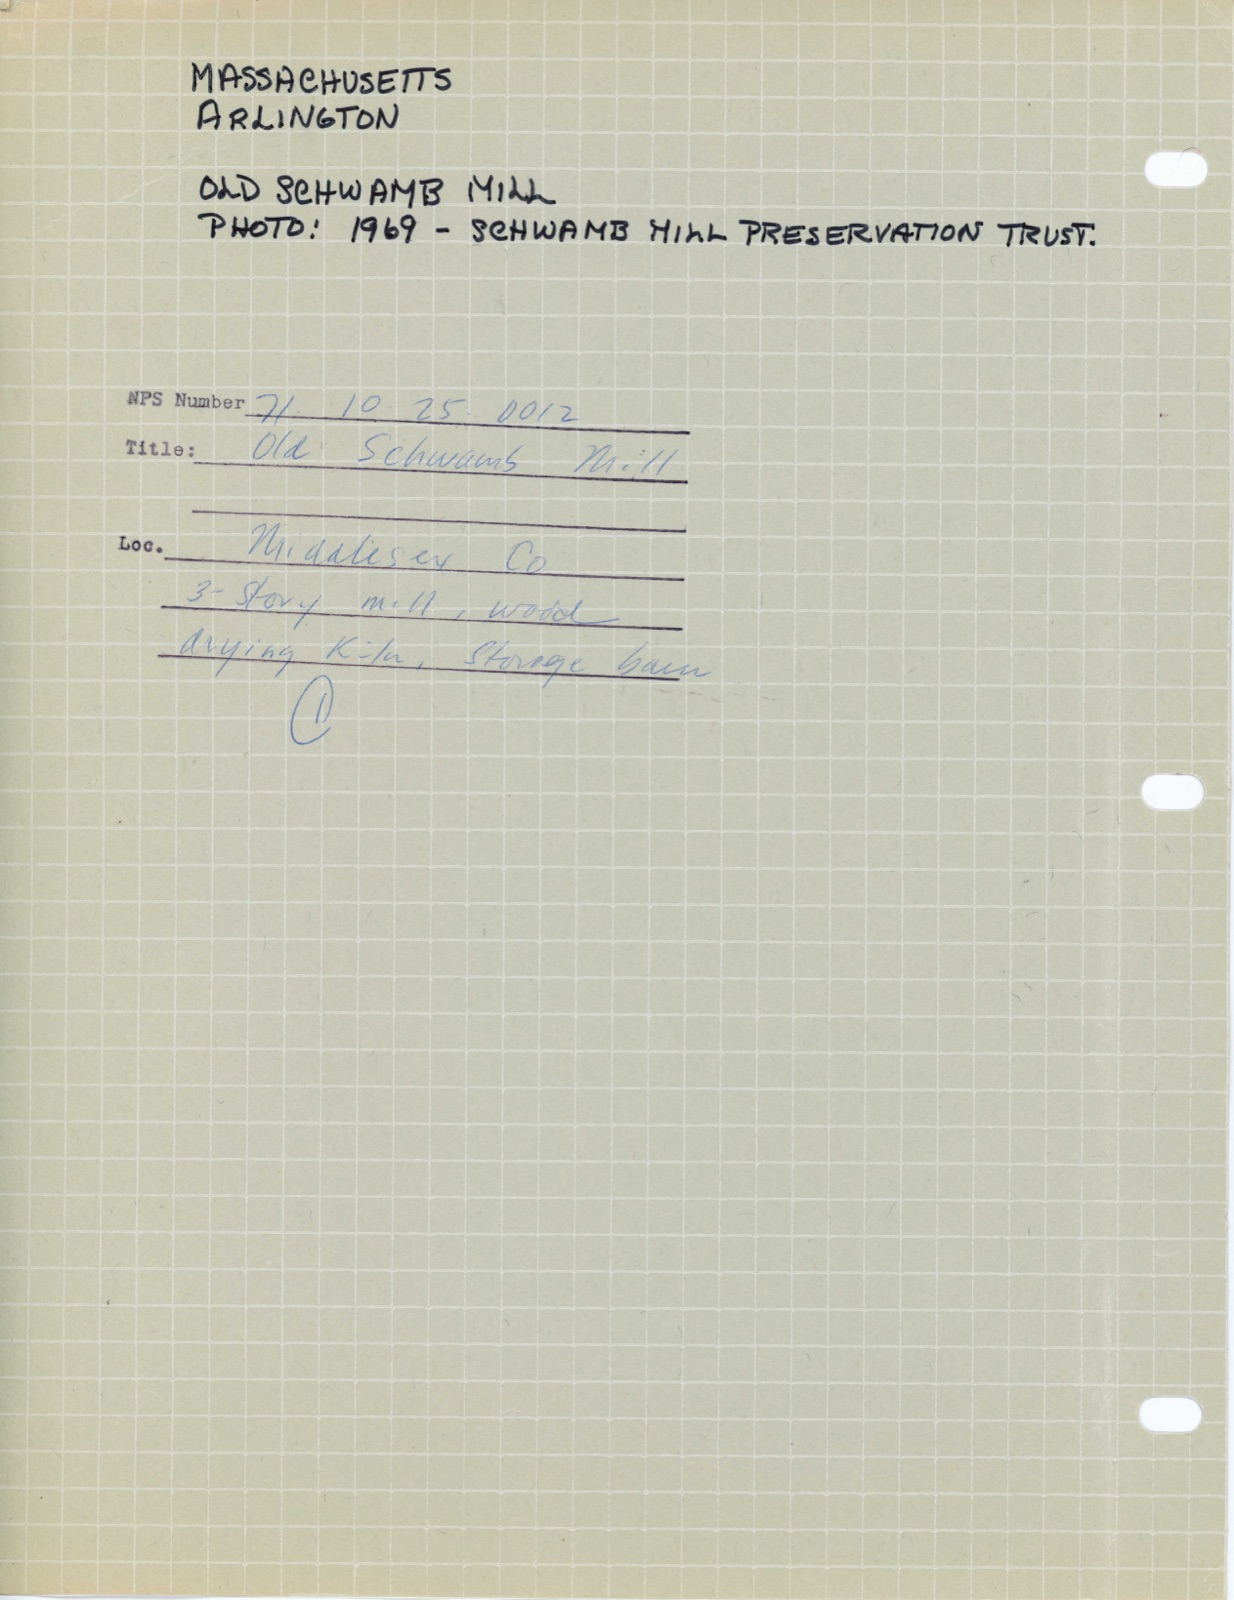 MASSACHUSETTS
ARLINGTON
OLD SCHWAMB MILL
PHOTO: 1969 - SCHWAMB MILL PRESERVATION TRUST.
NPS Number 71. 10. 25. 0012
Title: Old Schwamb Mill
Loc. Middlesex Co
3-story mill, wood
drying kiln, storage barn
1